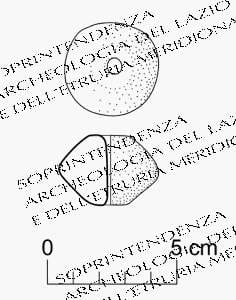 SOPRINTENDENZA
ARCHEOLOGIA DEL LAZIO
E DELL'ETRURIA MERIDIONA
SOPRINTENDENZA
ARCHEOLOGIA DEL LAZ
E DELL'ETRURIA MERIDIO
0 5 cm
SOPRINTENDENZA
ARCHEOLOGIA DEL
E DELL'ETRURIA MERI